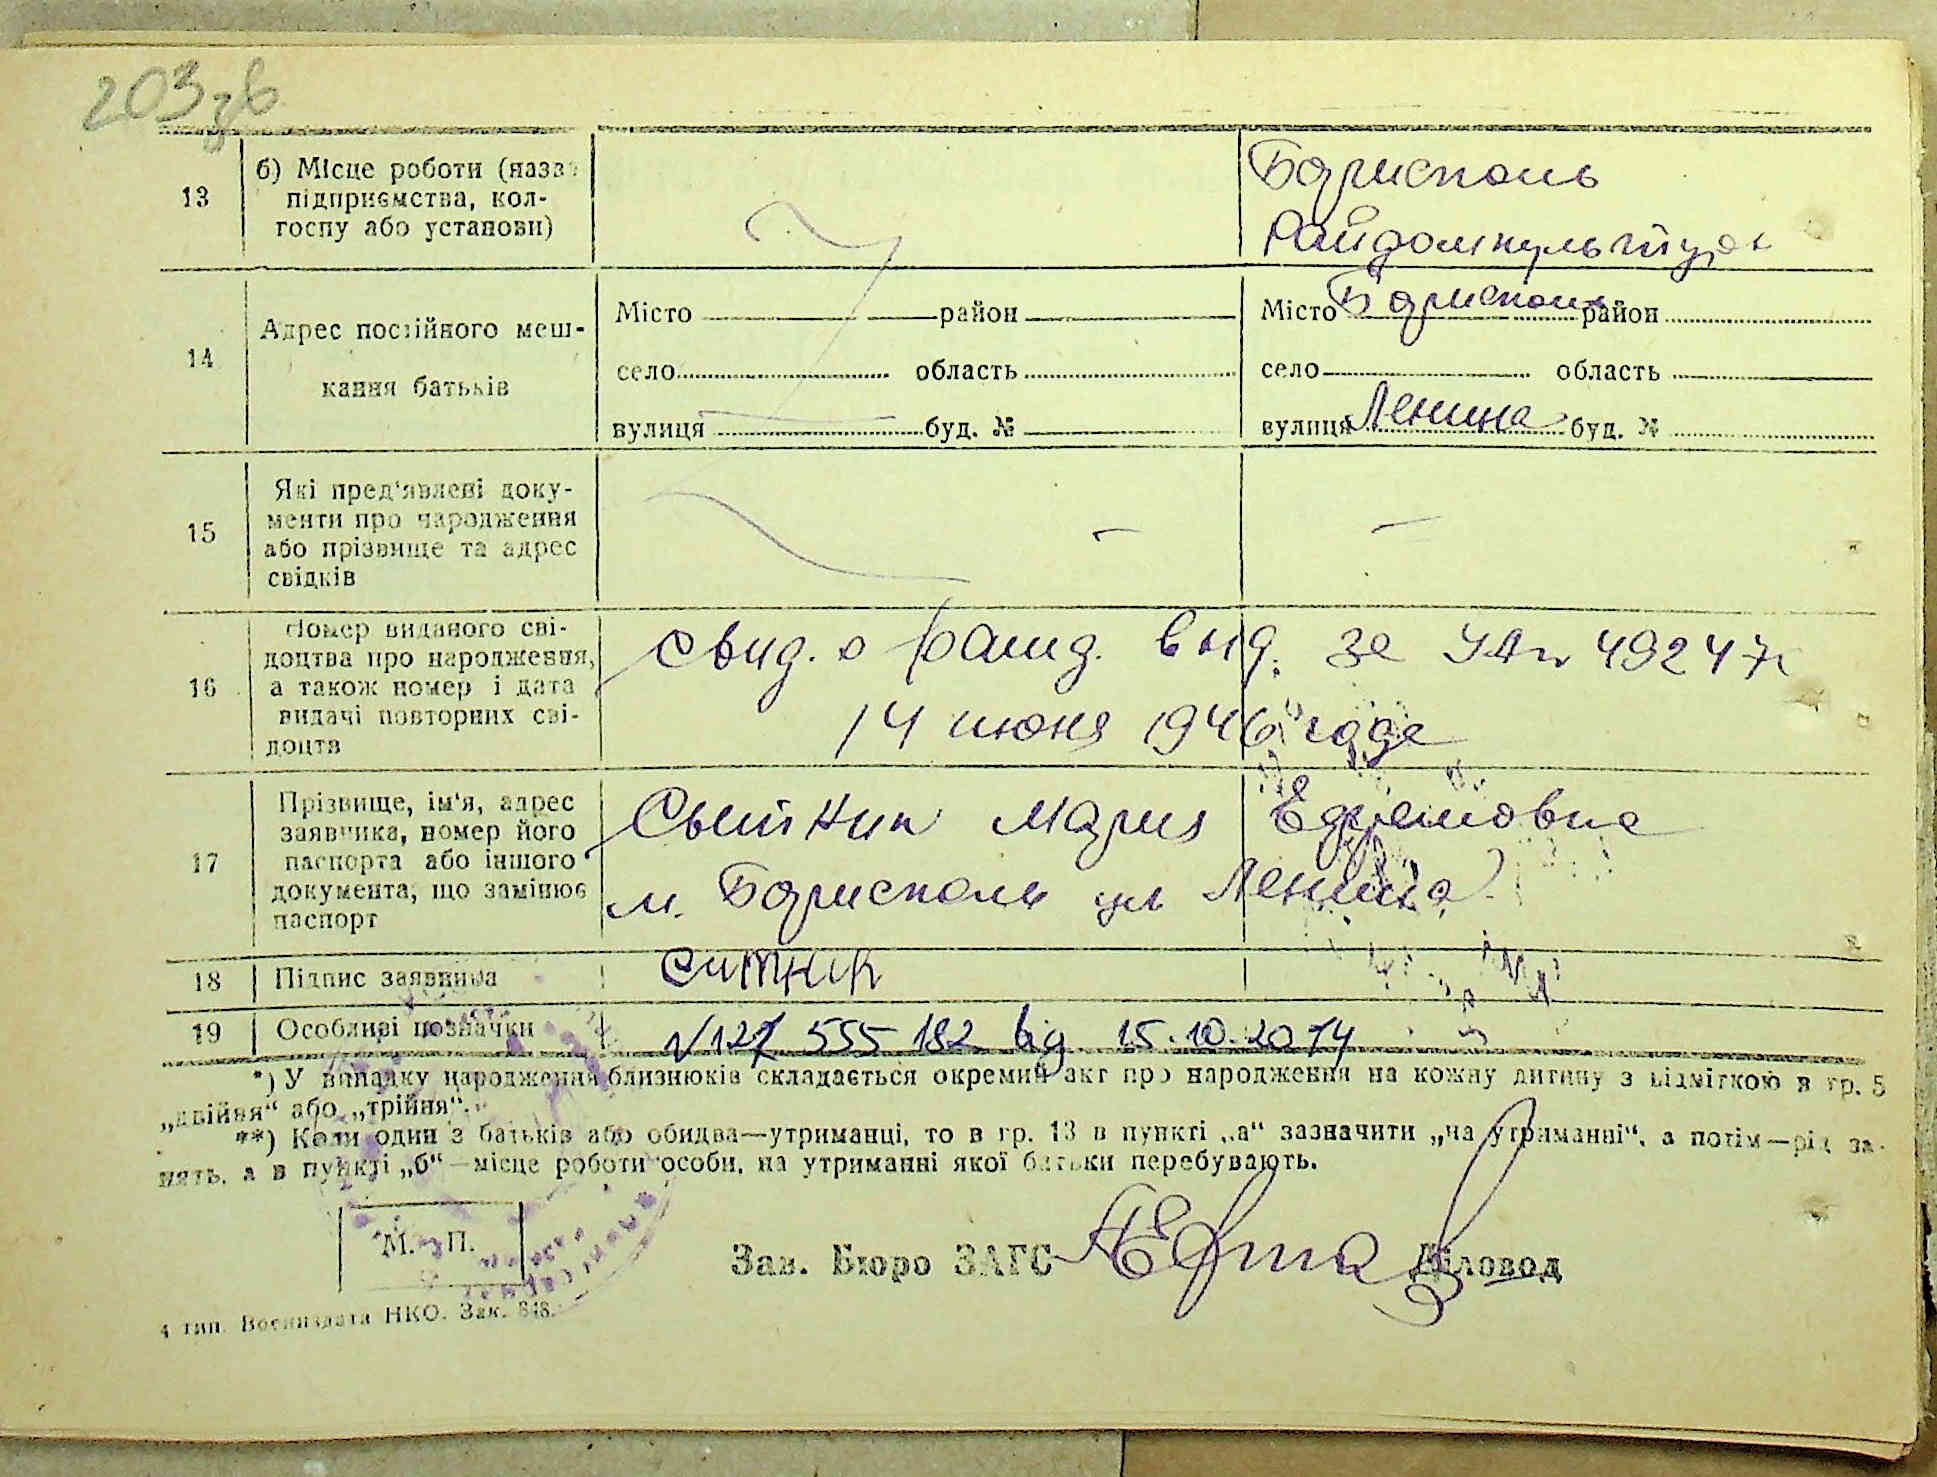 203зв
13
б) Місце роботи (назва
підприємства, кол-
госпу або установи)
Борисполь
Райдомкультури
14
Адрес постійного меш-
кання батьків
Місто район
село область
вулиця буд. №
Місто Борисполь район
село область
вулиця Ленина буд. №
15
Які пред'явлені доку-
менти про народження
або прізвище та адрес
свідків
16
Номер виданого сві-
доцтва про народження,
а також номер і дата
видачі повторних сві-
доцтв
Свид. о рожд. выд. за № 49247
14 июня 1946 года
17
Прізвище, ім'я, адрес
заявника, номер його
паспорта або іншого
документа, що замінює
паспорт
Сытник Мария Ефремовна
м. Борисполь ул Ленина
18
Підпис заявника
Ситник
19
Особливі позначки
№ 127 555 182 від 15.10.2014
*) У випадку народження близнюків складається окремий акт про народження на кожну дитину з відміткою в гр. 5
„двійня“ або „трійня“.
**) Коли один з батьків або обидва—утриманці, то в гр. 13 в пункті „а“ зазначити „на утриманні“, а потім—рід за-
нять, а в пункті „б“—місце роботи особи, на утриманні якої батьки перебувають.
М. П.
Зав. Бюро ЗАГС Діловод
4 тип. Воениздата НКО. Зак. 848.